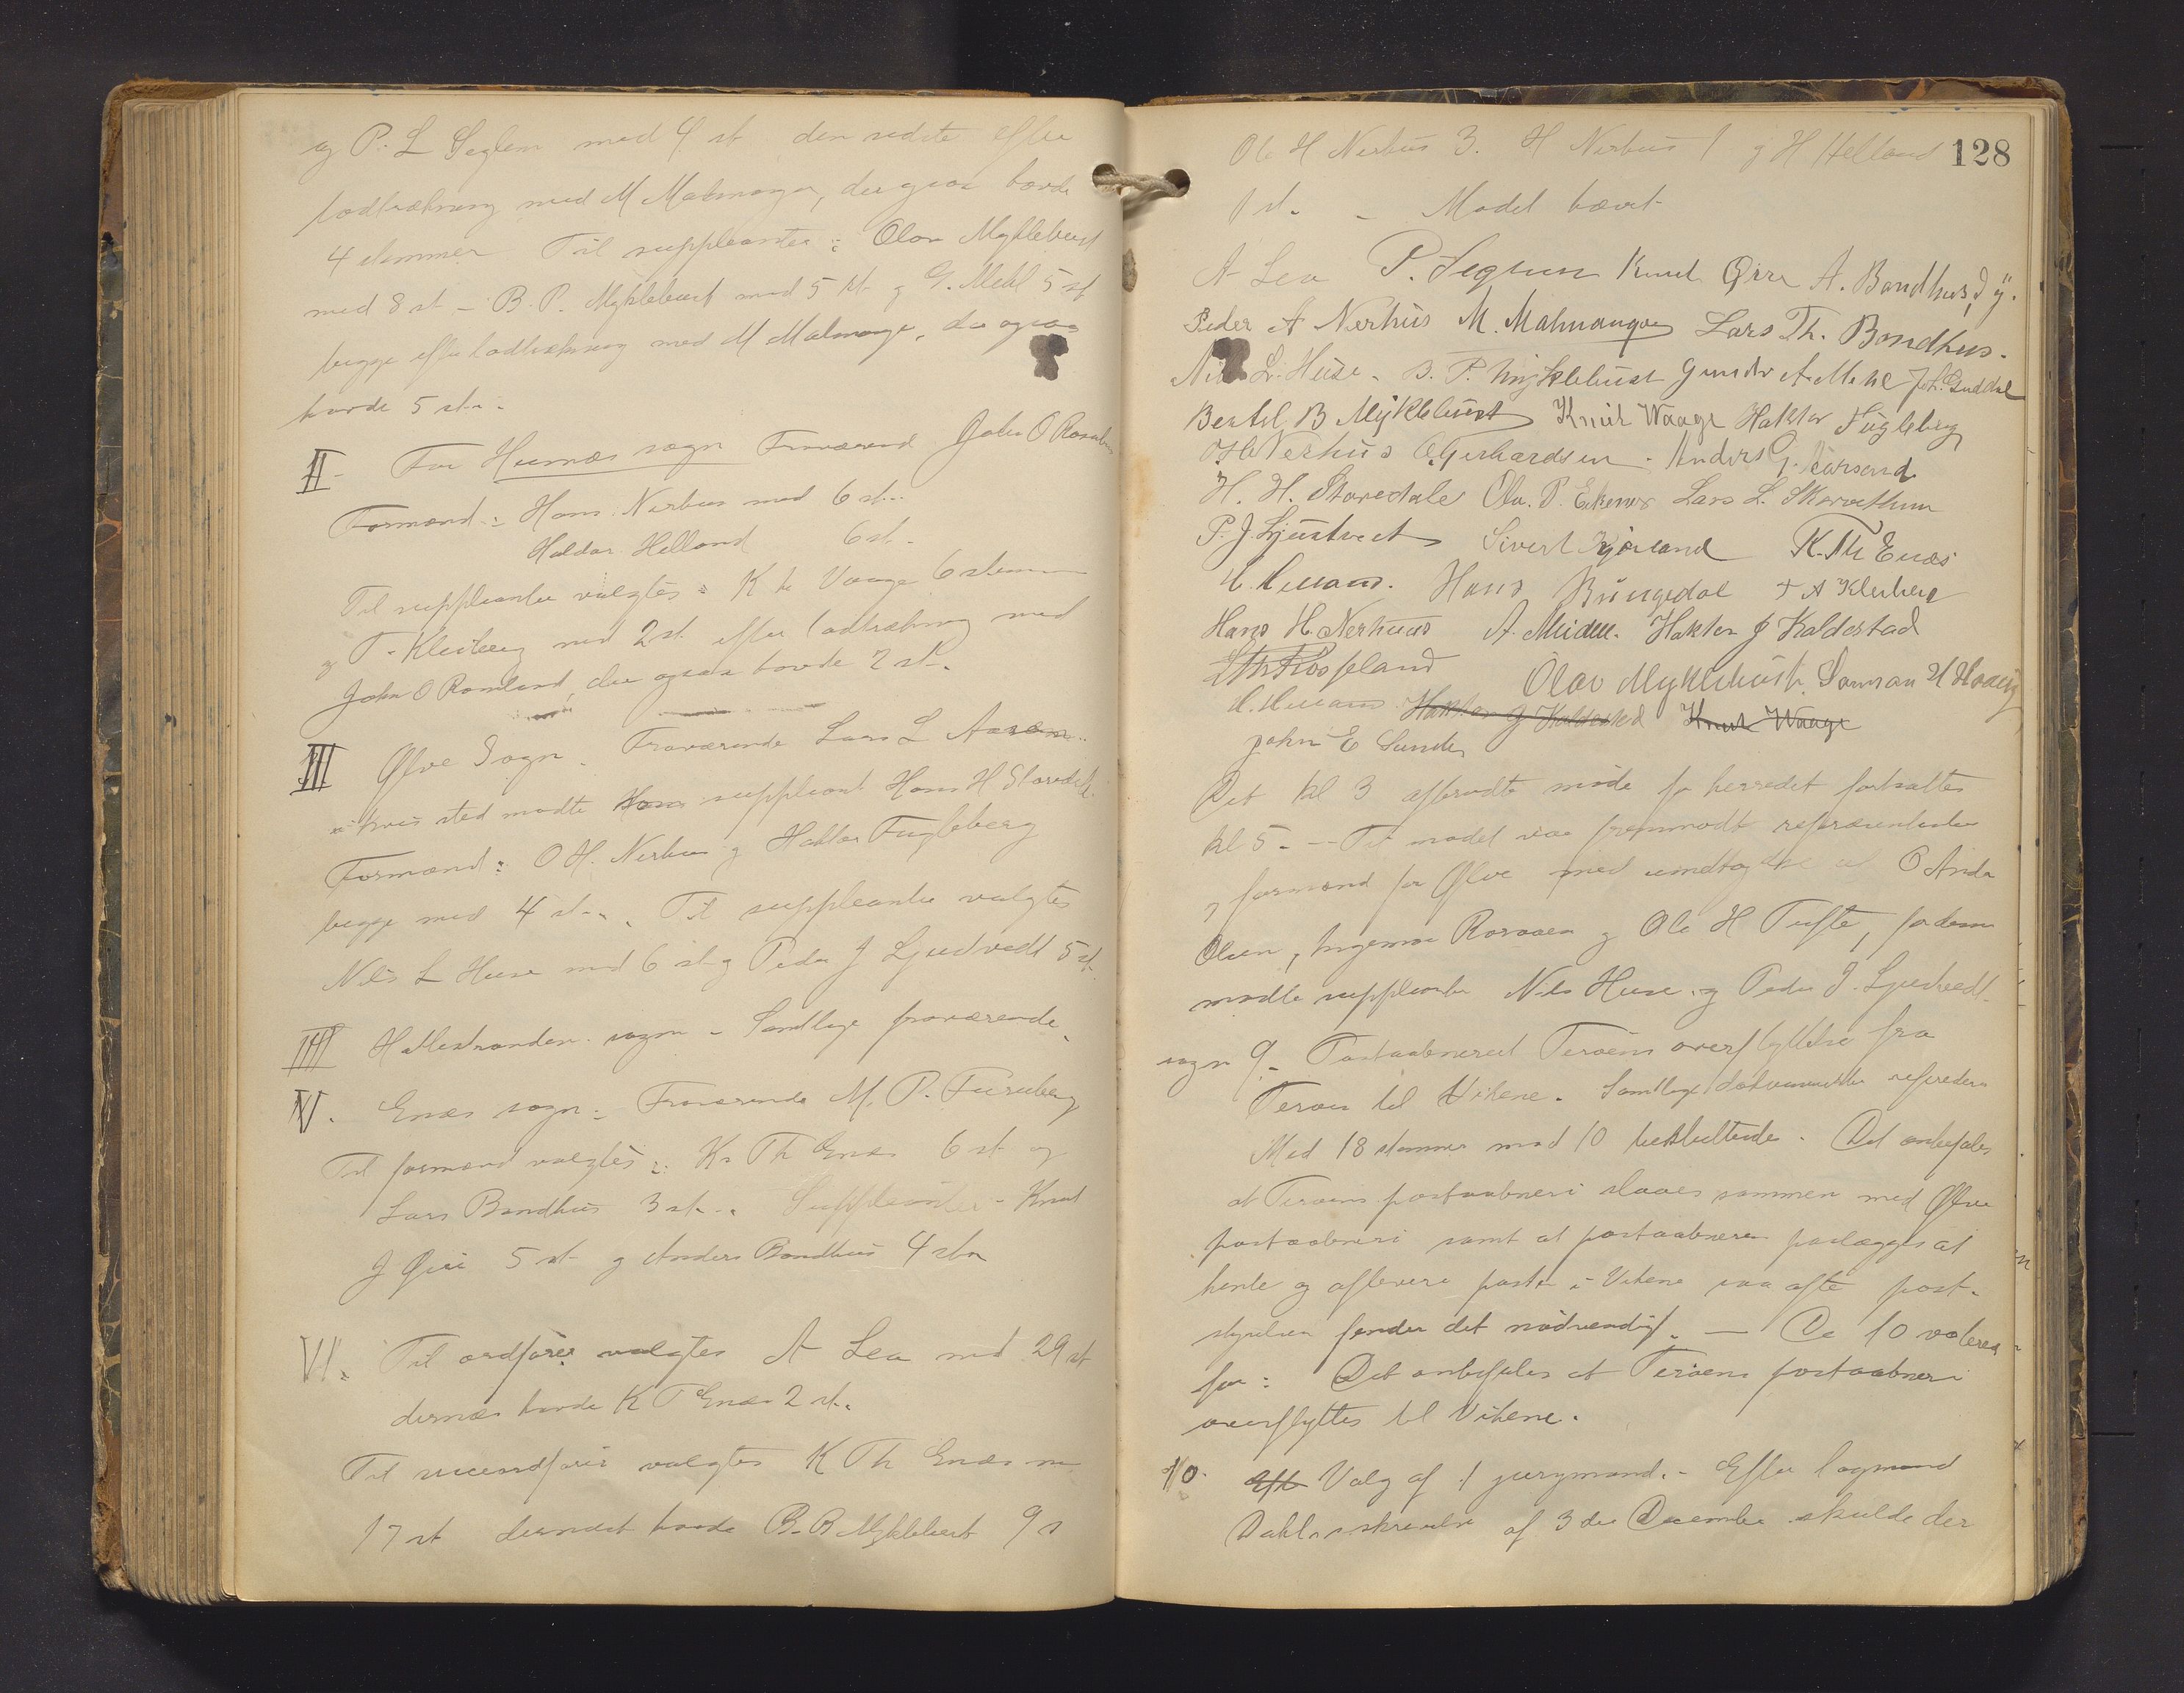 og P. L Seglem med 4 st den sidste efter
lodtrækning med M Malmanger, der ogsaa havde
4 stemmer Til suppleanter: Olav Myklebust
med 8 st – B. P. Myklebust med 5 st og G. Mehl 5 st
begge efter lodtrækning med M Malmange, der ogsaa
havde 5 st.
II – For Husnæs sogn Fraværend John O
Formænd: Hans Nerhus med 6 st.
Haldor Helland 6 st.
Til suppleanter valgtes: K Vaage 6 stemmer
og T. Kleiberg med 2 st. efter lodtrækning med
John O Ramland, der ogsaa havde 2 st.
III Ølve Sogn. Fraværende Lars L
i hvis sted mødte Hans suppleant Hans H Storedale
Formænd: O H. Nerhus og Haktor Fugleberg
begge med 4 st. Til suppleanter valgtes
Nils L Huse med 6 st og Peder J Ljusvedt 5 st.
IIII Hatlestranden sogn – Samtlige fraværende.
V. Enæs sogn: Fraværende M. P. Furuberg
Til formænd valgtes: Kr Th Enæs 6 st og
Lars Bondhus 3 st. Suppleanter – Knut
J Øire 5 st og Anders Bondhus 4 st
VI. Til ordfører valgtes A Lea med 29 st
dernæst havde K T Enæs 2 st.
Til viceordfører valgtes K Th Enæs m
17 st dernæst havde B. B Myklebust 9 s
128
Ole H Nerhus 3. H Nerhus 1 og H Helland
1 st. – Mødet hævet
A Lea P. Seglem Knut Øire A. Bondhus, d. y.
Peder A Nerhus M. Malmanger Lars Th. Bondhus.
Nils L. Huse. B. P. Myklebust Gunder A Mehl Joh. Guddal
Bertel B Myklebust Knut Waage Haktor Fugleberg
O H Nerhus O Gerhardsen. Anders G.
H. H. Storedale Ola. P. Eikenes Lars L.
P. J. Ljustvedt Sivert K. Th Enæs
Hans T A Kleiberg
Hans H. Nerhuus A. Haktor J Kaldestad
Olav Myklebust. Samson H
Haktor J Kaldestad Knut Waage
John E Sunde
Det kl 3 afbrudte møde for herredet fortsattes
kl 5. – Til mødet var fremmødt repræsentanter
og formænd for Ølve med undtagelse af O Andr
Olsen, Ingemar og Ole H Tufte, for dem
mødte suppleanter Nils Huse og Peder J. Ljusvedt.
sagn 9. – Postaabneriet Terøens overflyttelse fra
Terøen til Vikene. Samtlige dokumenter refereders
Med 18 stemmer mod 10 besluttedes. Det anbefales
at Terøens postaabneri slaaes sammen med Ølve
postaabneri samt at postaabneren paalægges at
hente og aflevere posten i Vikene saa ofte post-
styrelsen finder det nødvendigt. – De 10 voterea
for: Det anbefales at Terøens postaabneri
overflyttes til Vikene.
10. Efte Valg af 1 jurymand. – Efter lagmand
Dahls skrivelse af 3die December skulde der